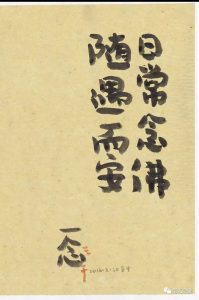 日常念佛
随遇而安
一念